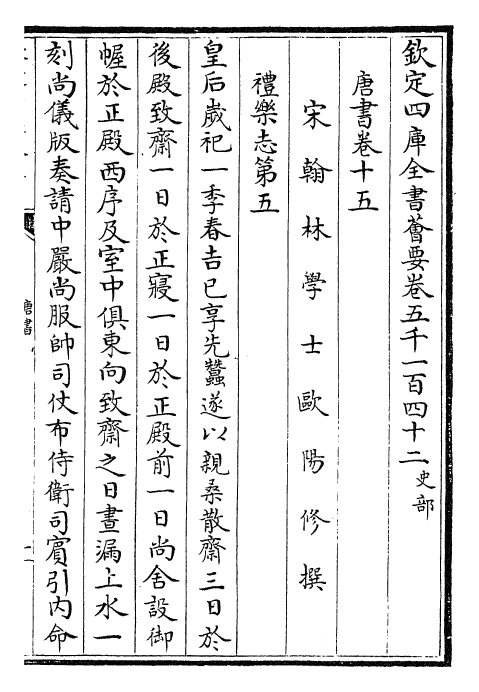 欽定四庫全書薈要卷五千一百四十二史部
唐書卷十五
宋翰林學士歐陽修撰
禮樂志第五
皇后歲祀一季春吉巳享先蠶遂以親桑散齋三日於
後殿致齋一日於正寢一日於正殿前一日尚舍設御
幄於正殿西序及室中俱東向致齋之日晝漏上水一
刻尚儀版奏請中嚴尚服帥司仗布侍衛司賓引內命
唐書